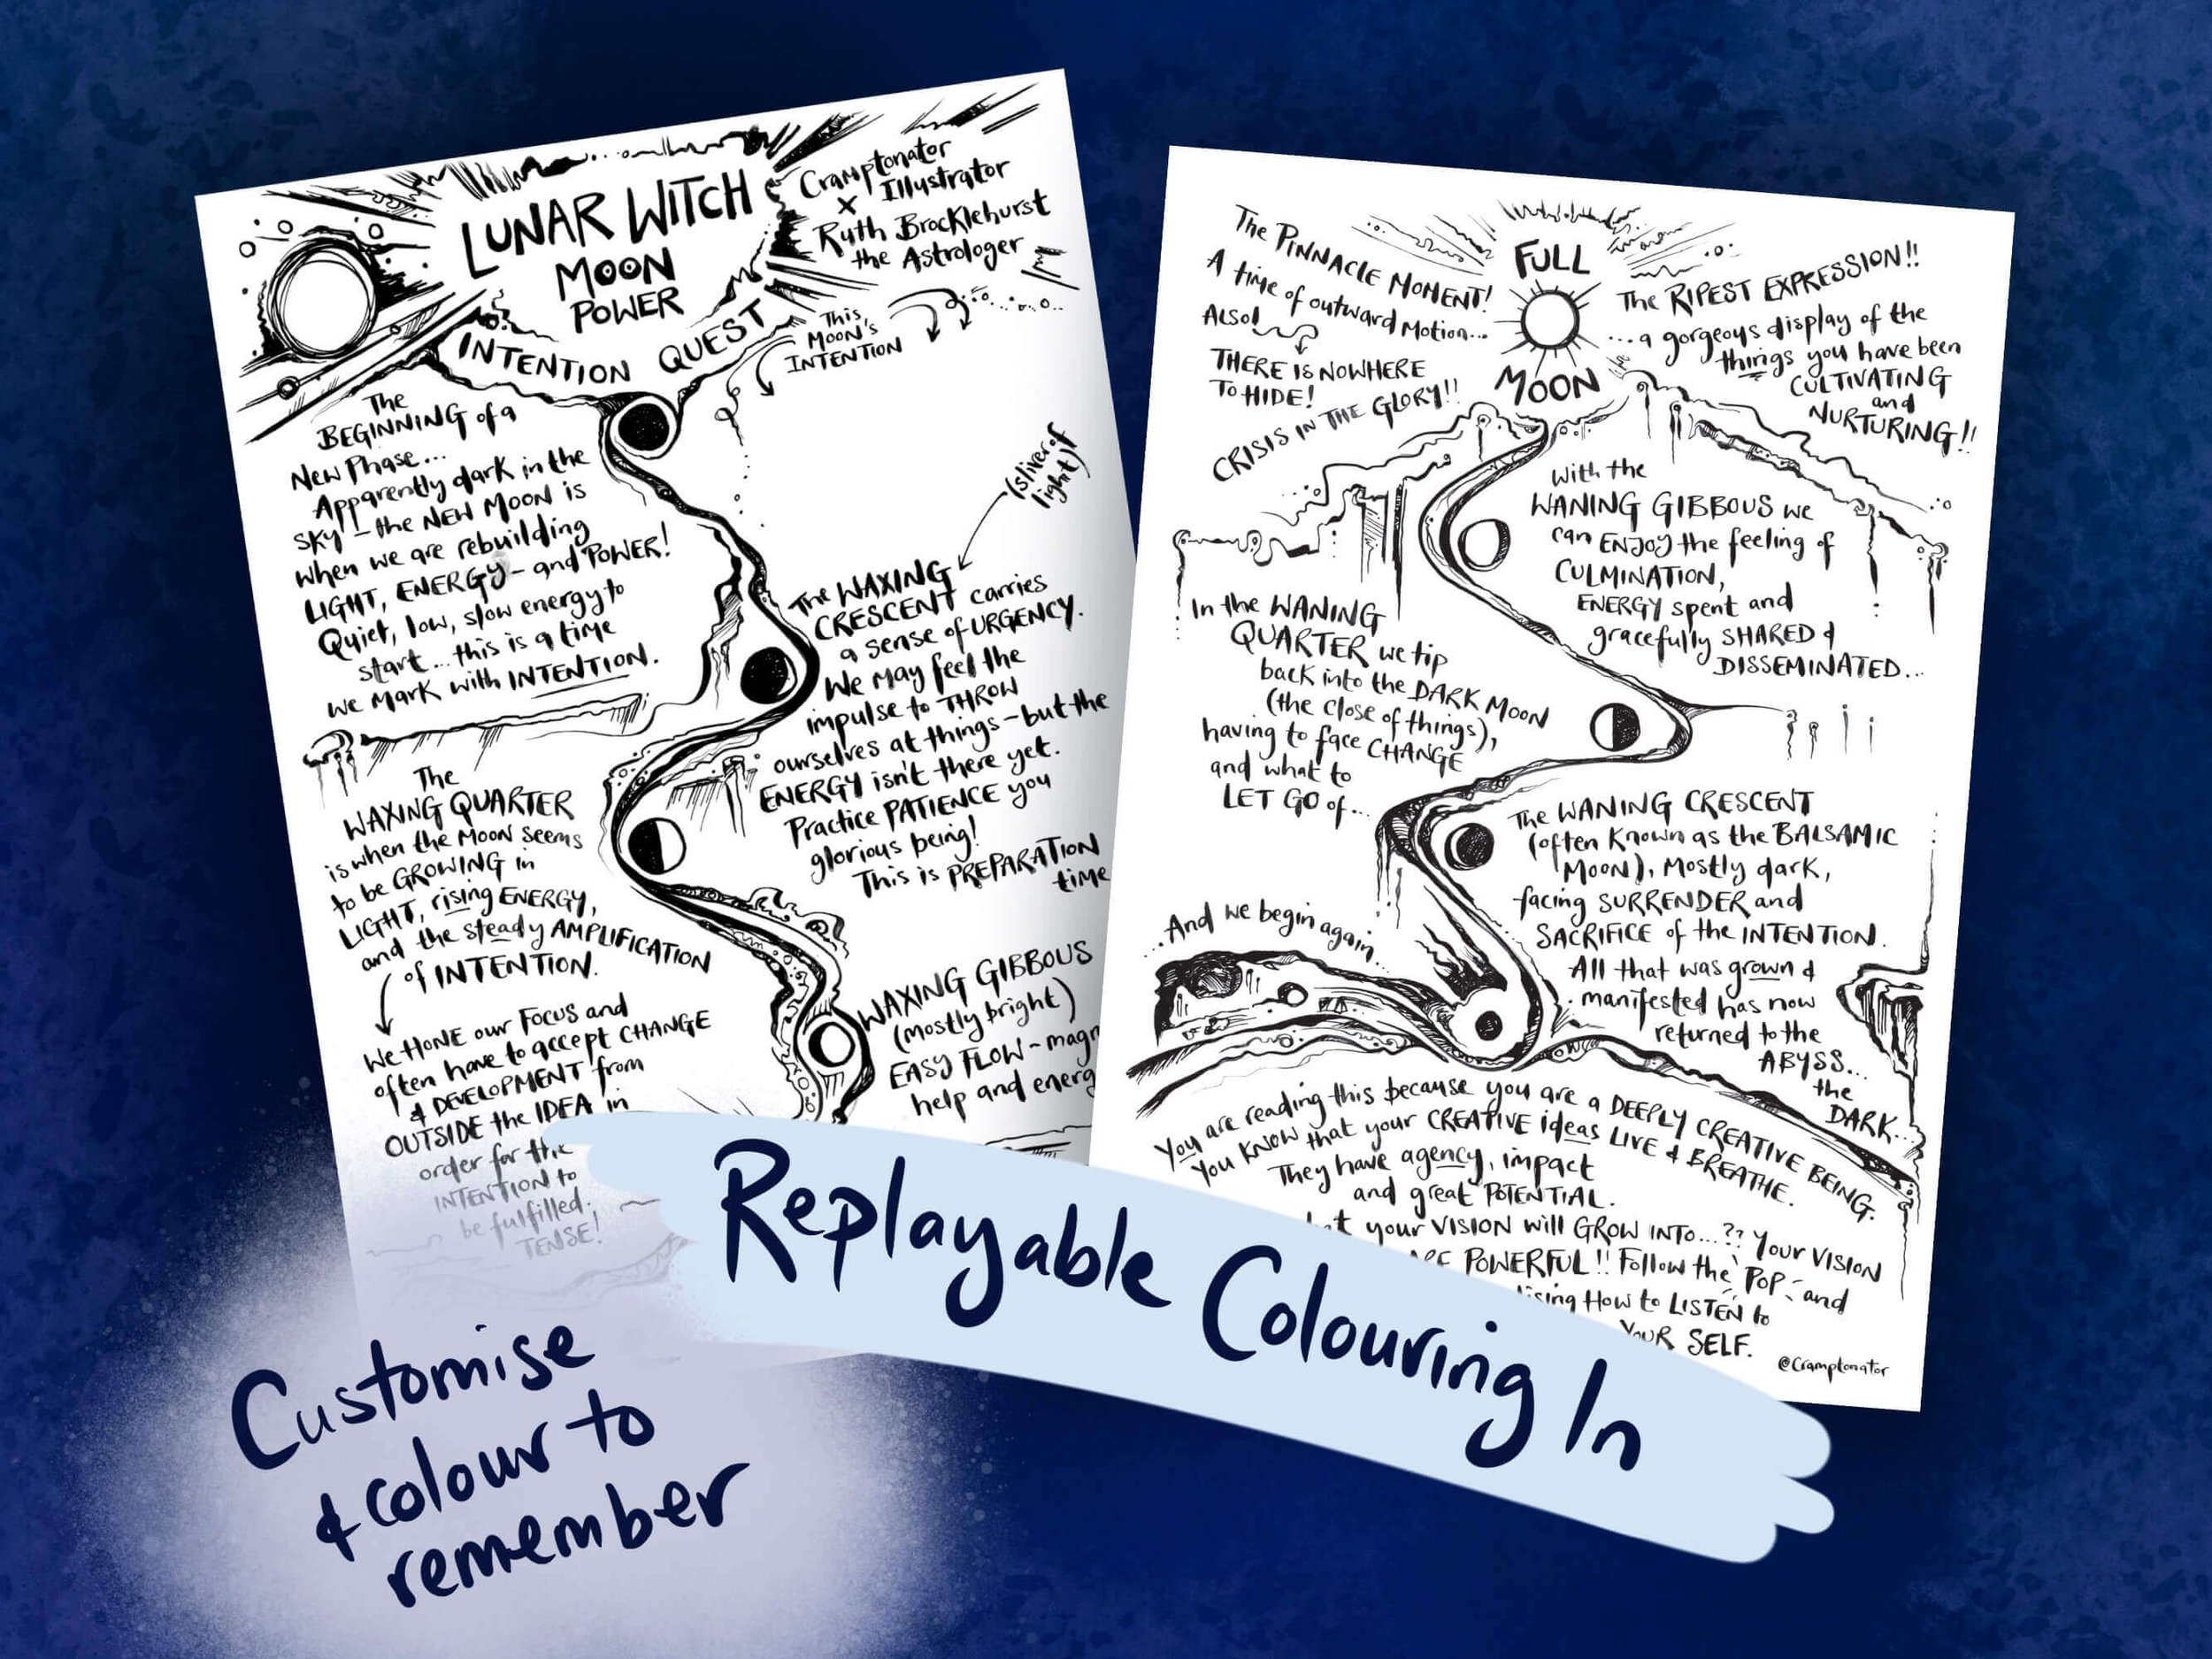 LUNAR WITCH
MOON
POWER
INTENTION QUEST
Cramptonator
Illustrator
x
Ruth Brocklehurst
the Astrologer
This
Moon's
INTENTION
The
BEGINNING of a
New Phase...
Apparently dark in the
sky – the NEW MOON is
when we are rebuilding
LIGHT, ENERGY – and POWER!
Quiet, low, slow energy to
start... this is a time
we mark with INTENTION.
(sliver of
light)
The WAXING
CRESCENT carries
a sense of URGENCY.
We may feel the
impulse to THROW
ourselves at things – but the
ENERGY isn't there yet.
Practice PATIENCE you
glorious being!
This is PREPARATION
time
The
WAXING QUARTER
is when the Moon seems
to be GROWING in
LIGHT, rising ENERGY,
and the steady AMPLIFICATION
of INTENTION.
We HONE our FOCUS and
often have to accept CHANGE
& DEVELOPMENT from
OUTSIDE the IDEA in
order for the
INTENTION to
be fulfilled.
TENSE!
WAXING GIBBOUS
(mostly bright)
EASY FLOW – magn
help and energ
The PINNACLE MOMENT!
A time of outward motion...
ALSO!
THERE IS NOWHERE
TO HIDE!
CRISIS IN THE GLORY!!
FULL
MOON
The RIPEST EXPRESSION!!
...a gorgeous display of the
things you have been
CULTIVATING
and
NURTURING!!
With the
WANING GIBBOUS we
can ENJOY the feeling of
CULMINATION,
ENERGY spent and
gracefully SHARED &
DISSEMINATED...
In the WANING
QUARTER we tip
back into the DARK MOON
(the close of things),
having to face CHANGE
and what to
LET GO of...
The WANING CRESCENT
(often known as the BALSAMIC
MOON), mostly dark,
facing SURRENDER and
SACRIFICE of the INTENTION.
All that was grown &
manifested has now
returned to the
ABYSS...
the
DARK...
...And we begin again...
You are reading this because you are a DEEPLY CREATIVE BEING.
You KNOW that your CREATIVE ideas LIVE & BREATHE.
They have agency, impact
and great POTENTIAL.
your VISION will GROW INTO...?? Your VISION
POWERFUL!! Follow the 'POP' and
How to LISTEN to
YOUR SELF.
@Cramptonator
Replayable Colouring In
Customise
& colour to
remember